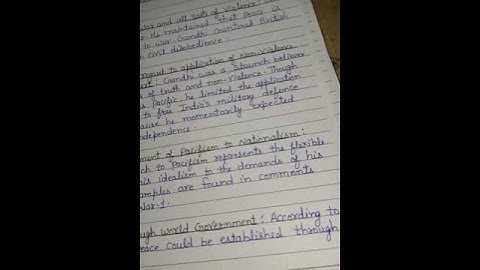 war and all sorts of Violence:
he maintained that peace is
to war Gandhi countered British
civil disobedience.
regard to application of Non-Violence
Gandhi was a staunch believer
of truth and non-violence. Though
Pacific, he limited the application
to free India's military defence
he momentarily expected
independence.
of Pacifism to Nationalism:
to Pacifism represents the flexible
his idealism to the demands of his
are found in comments
World Government: According to
peace could be established through